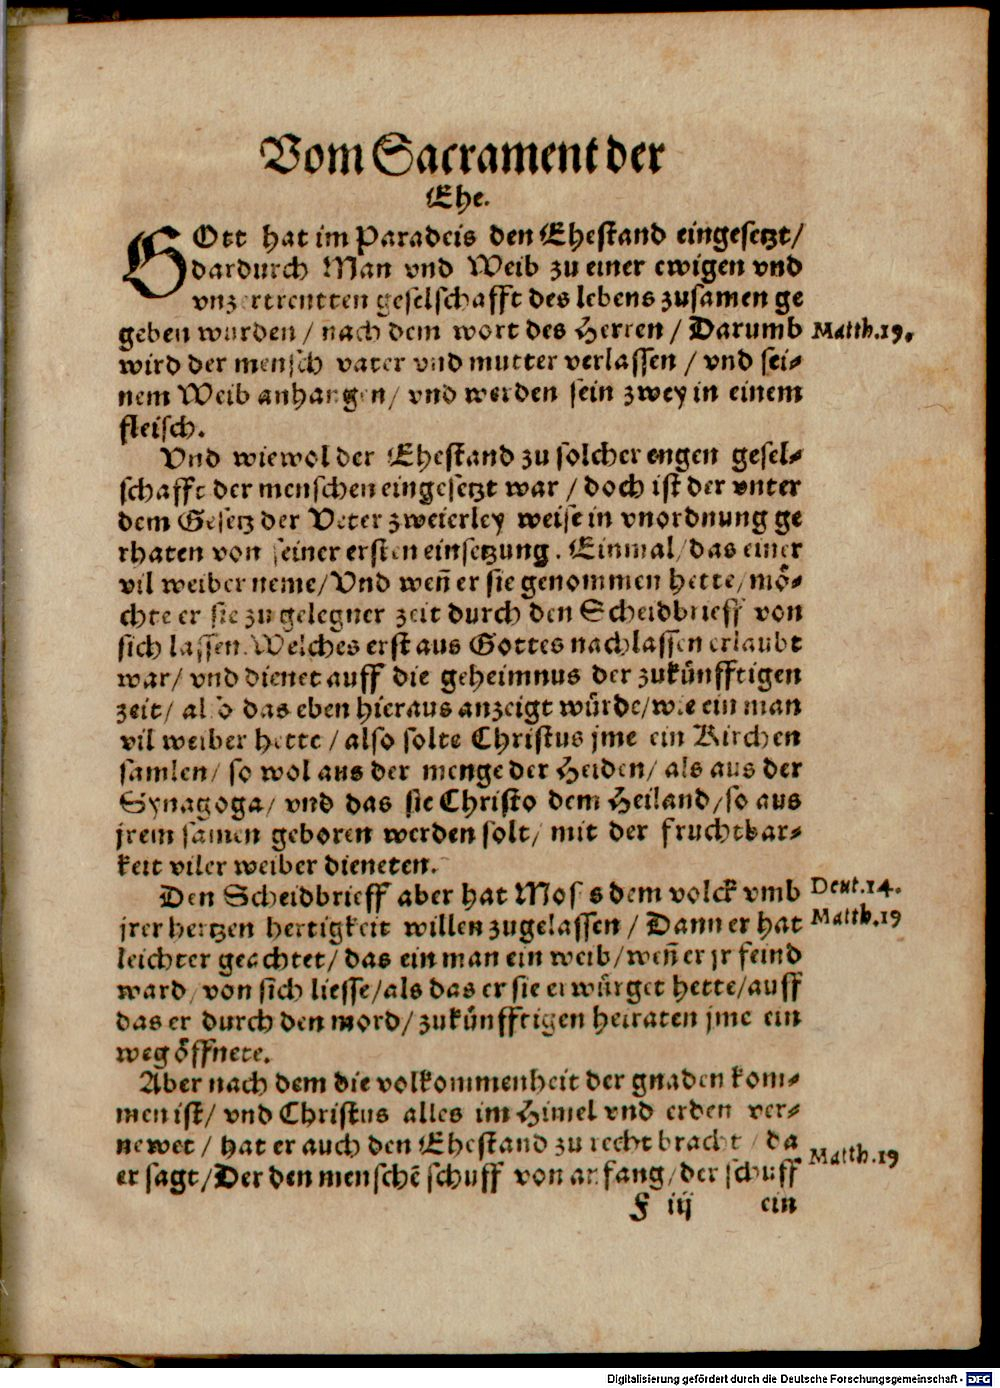 Vom Sacrament der
Ehe.
GOtt hat im Paradeis den Ehestand eingesetzt/
dardurch Man vnd Weib zu einer ewigen vnd
vnzertrentten geselschafft des lebens zusamen ge
geben wurden / nach dem wort des Herren / Darumb
Matth.19.
wird der mensch vater vnd mutter verlassen / vnd sei-
nem Weib anhangen/ vnd werden sein zwey in einem
fleisch.
Vnd wiewol der Ehestand zu solcher engen gesel-
schafft der menschen eingesetzt war / doch ist der vnter
dem Gesetz der Veter zweierley weise in vnordnung ge
rhaten von seiner ersten einsetzung. Einmal/das einer
vil weiber neme/Vnd weñ er sie genommen hette/mö-
chte er sie zu gelegner zeit durch den Scheidbrieff von
sich lassen. Welches erst aus Gottes nachlassen erlaubt
war/ vnd dienet auff die geheimnus der zukünfftigen
zeit/ also das eben hieraus anzeigt würde/wie ein man
vil weiber hette / also solte Christus jme ein Kirchen
samlen/ so wol aus der menge der Heiden/ als aus der
Synagoga/ vnd das sie Christo dem Heiland/so aus
jrem samen geboren werden solt/ mit der fruchtbar-
keit viler weiber dieneten.
Den Scheidbrieff aber hat Moses dem volck vmb
Deut.14.
jrer hertzen hertigkeit willen zugelassen / Dann er hat
Matth.19
leichter geachtet/ das ein man ein weib/weñ er jr feind
ward/von sich liesse/als das er sie erwürget hette/auff
das er durch den mord/ zukünfftigen heiraten jme ein
weg öffnete.
Aber nach dem die volkommenheit der gnaden kom-
men ist/ vnd Christus alles im Himel vnd erden ver-
newet / hat er auch den Ehestand zu recht bracht / da
er sagt/Der den menschē schuff von anfang/der schuff
Matth.19
F iij ein
Digitalisierung gefördert durch die Deutsche Forschungsgemeinschaft - DFG